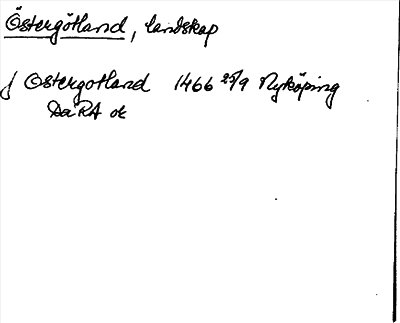 Östergötland, landskap
J Ostergotland 1466 25/9 Nyköping
DaRA ok